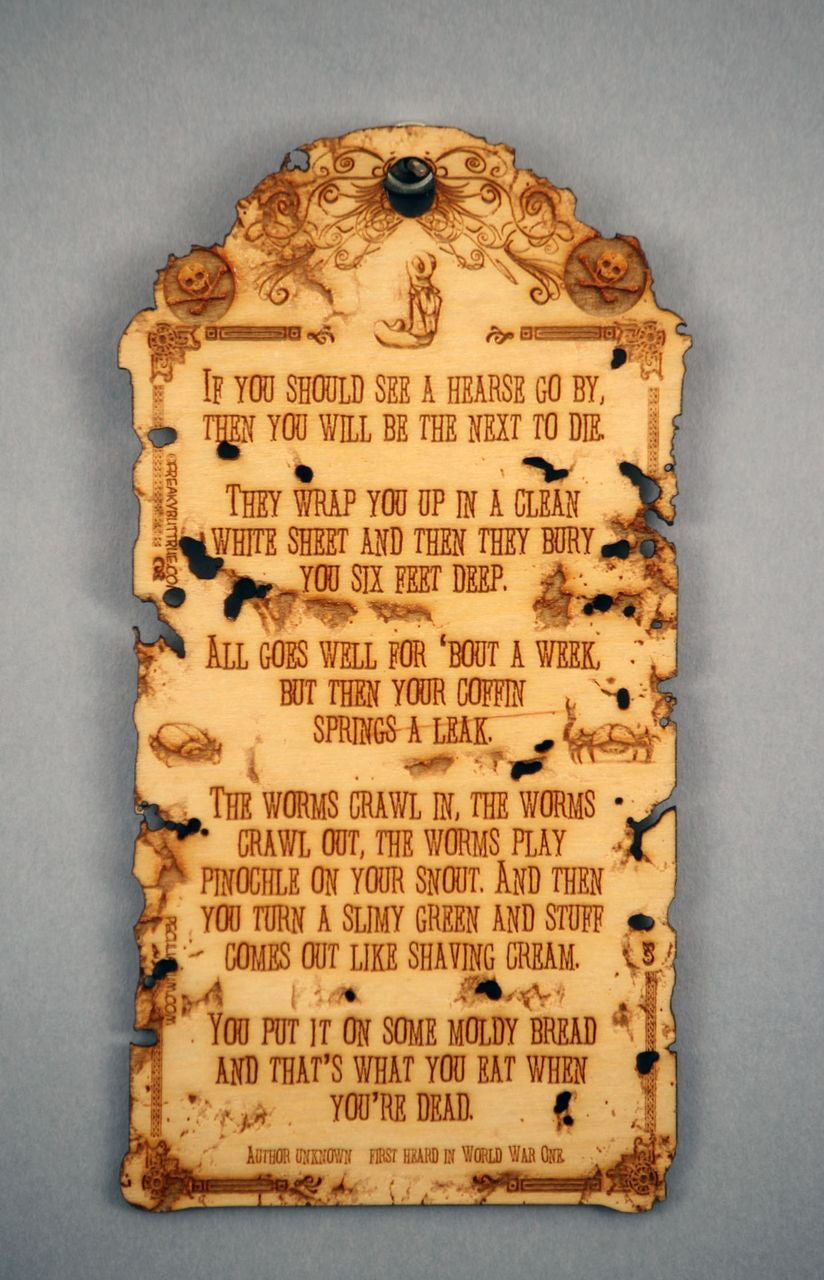 IF YOU SHOULD SEE A HEARSE GO BY,
THEN YOU WILL BE THE NEXT TO DIE.
THEY WRAP YOU UP IN A CLEAN
WHITE SHEET AND THEN THEY BURY
YOU SIX FEET DEEP.
ALL GOES WELL FOR ‘BOUT A WEEK,
BUT THEN YOUR COFFIN
SPRINGS A LEAK.
THE WORMS CRAWL IN, THE WORMS
CRAWL OUT, THE WORMS PLAY
PINOCHLE ON YOUR SNOUT. AND THEN
YOU TURN A SLIMY GREEN AND STUFF
COMES OUT LIKE SHAVING CREAM.
YOU PUT IT ON SOME MOLDY BREAD
AND THAT'S WHAT YOU EAT WHEN
YOU'RE DEAD.
AUTHOR UNKNOWN FIRST HEARD IN WORLD WAR ONE